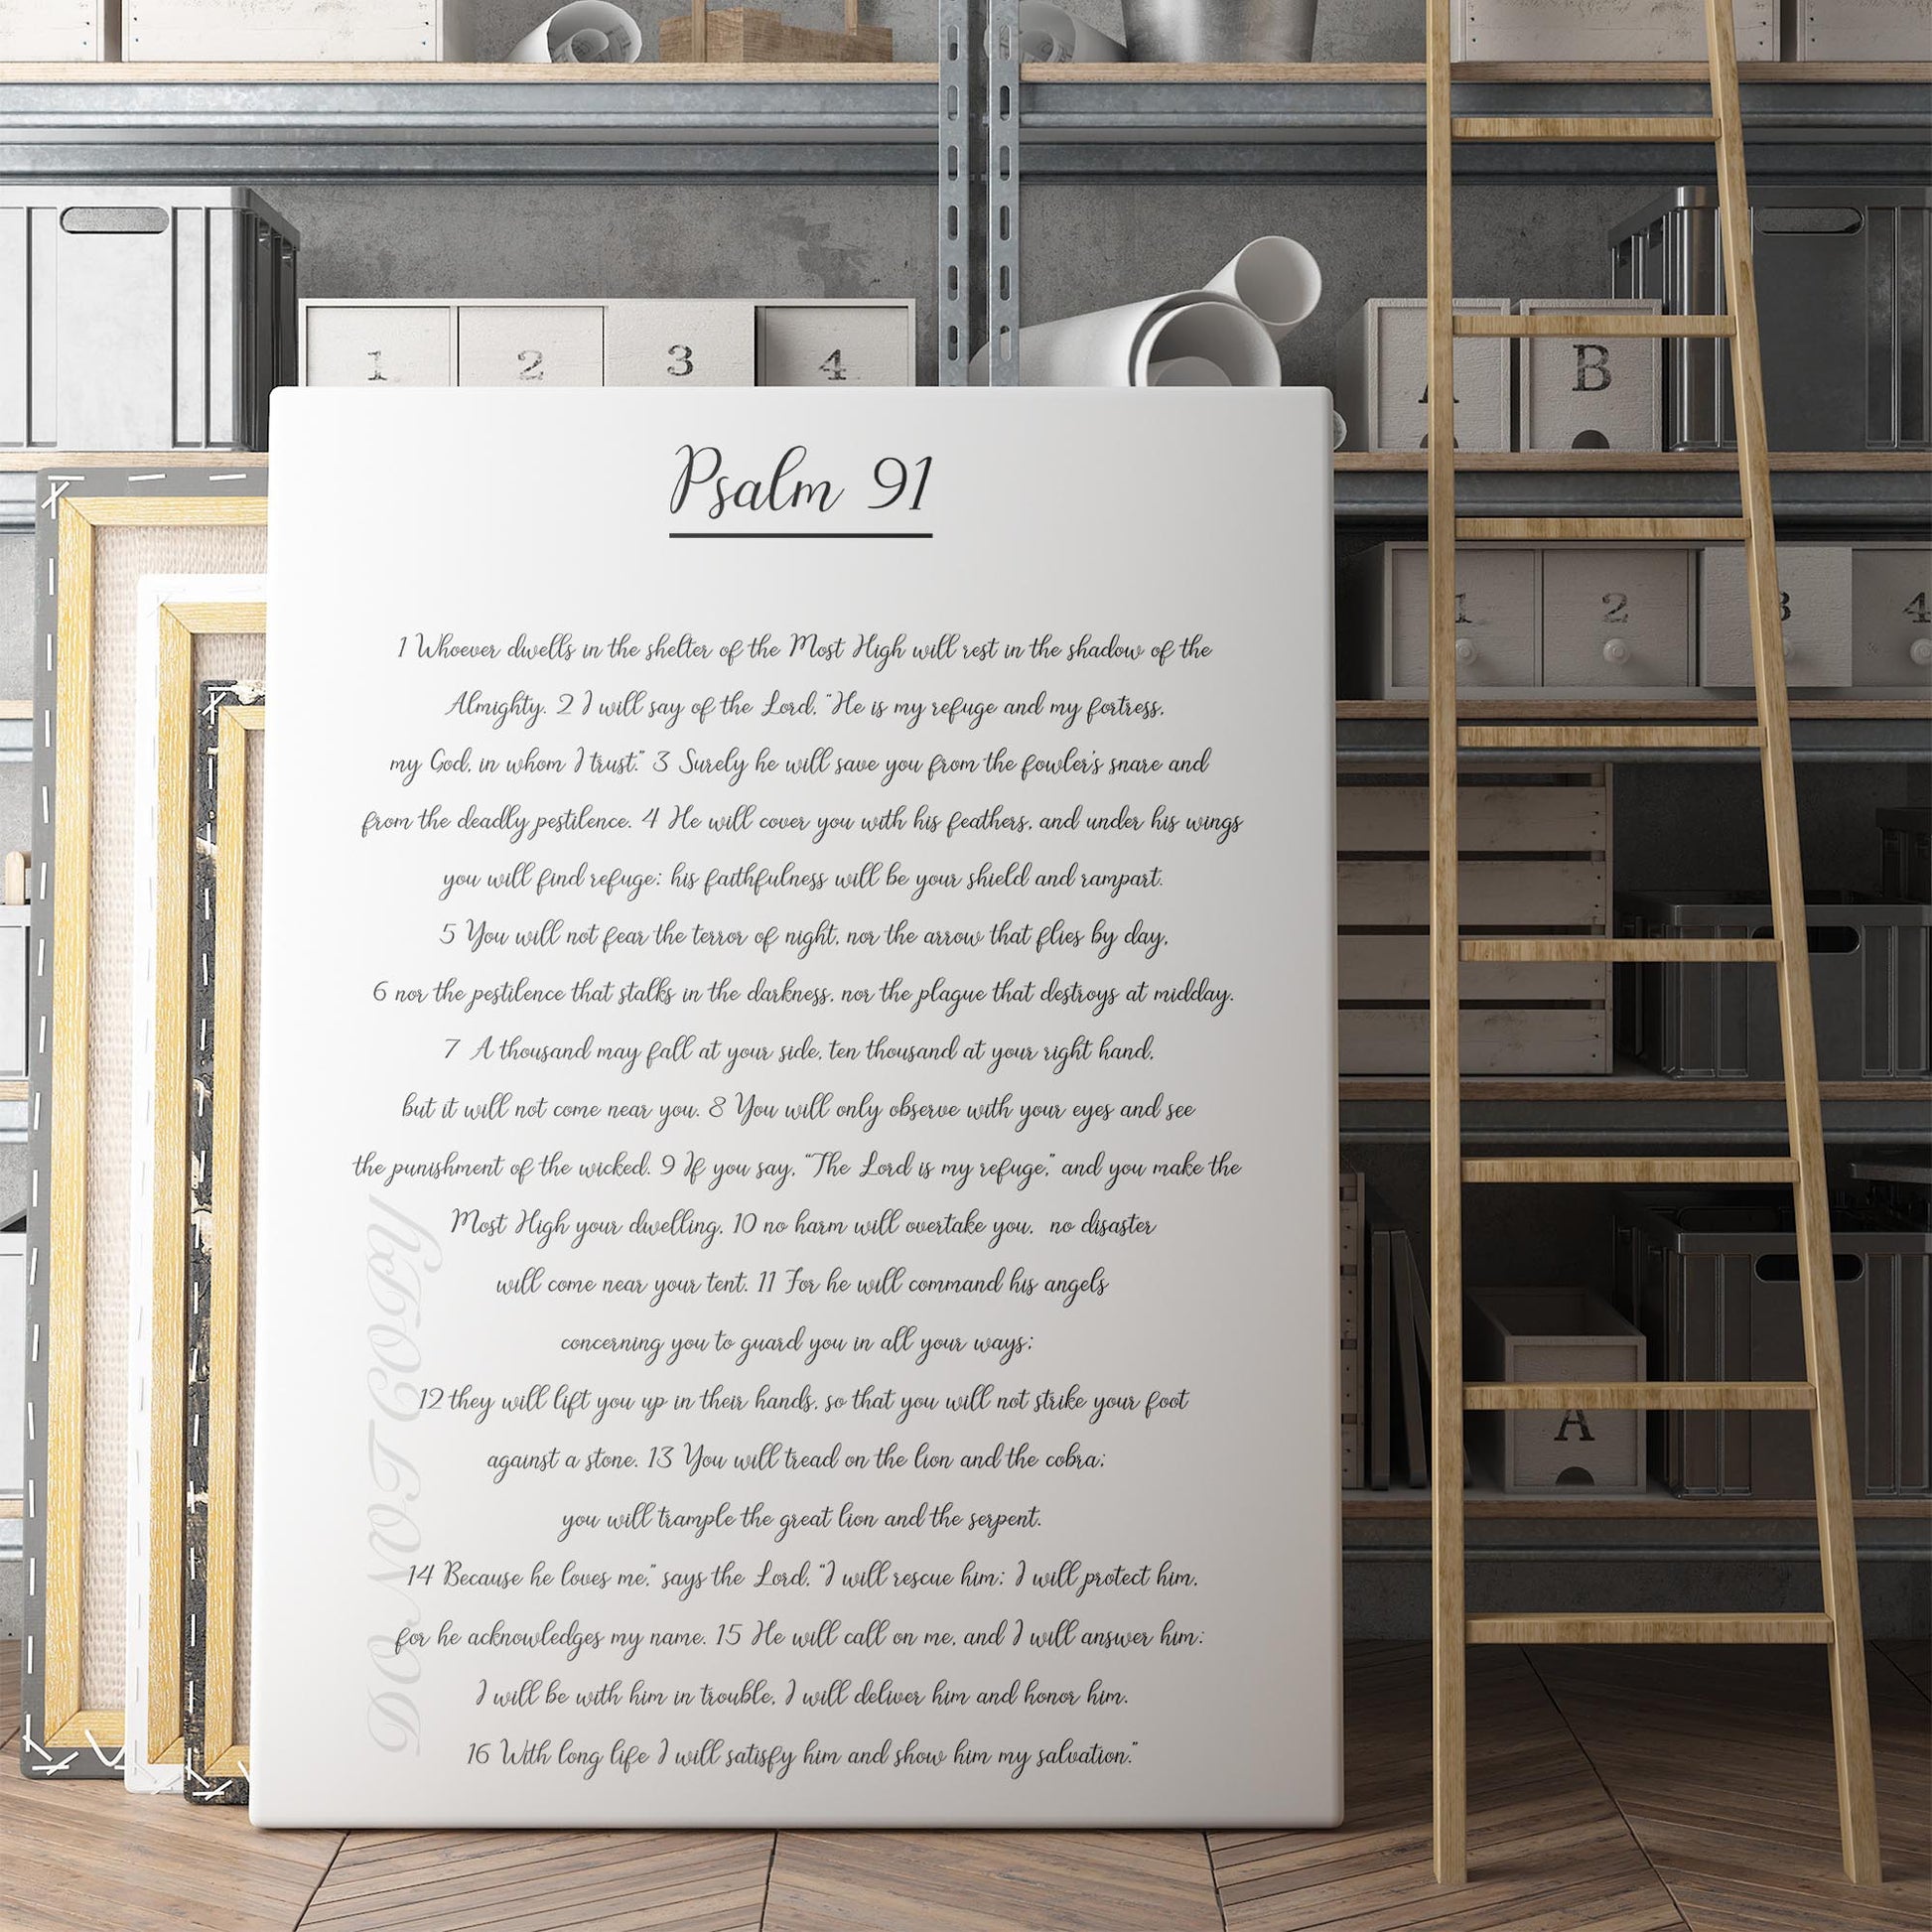 1 2 3 4
A B
Psalm 91
1 2 3 4
1 Whoever dwells in the shelter of the Most High will rest in the shadow of the
Almighty. 2 I will say of the Lord, "He is my refuge and my fortress,
my God, in whom I trust." 3 Surely he will save you from the fowler's snare and
from the deadly pestilence. 4 He will cover you with his feathers, and under his wings
you will find refuge; his faithfulness will be your shield and rampart.
5 You will not fear the terror of night, nor the arrow that flies by day,
6 nor the pestilence that stalks in the darkness, nor the plague that destroys at midday.
7 A thousand may fall at your side, ten thousand at your right hand,
but it will not come near you. 8 You will only observe with your eyes and see
the punishment of the wicked. 9 If you say, "The Lord is my refuge," and you make the
Most High your dwelling, 10 no harm will overtake you, no disaster
will come near your tent. 11 For he will command his angels
concerning you to guard you in all your ways;
12 they will lift you up in their hands, so that you will not strike your foot
against a stone. 13 You will tread on the lion and the cobra;
you will trample the great lion and the serpent.
14 Because he loves me," says the Lord, "I will rescue him; I will protect him,
for he acknowledges my name. 15 He will call on me, and I will answer him;
I will be with him in trouble, I will deliver him and honor him.
16 With long life I will satisfy him and show him my salvation."
DO NOT COPY
A